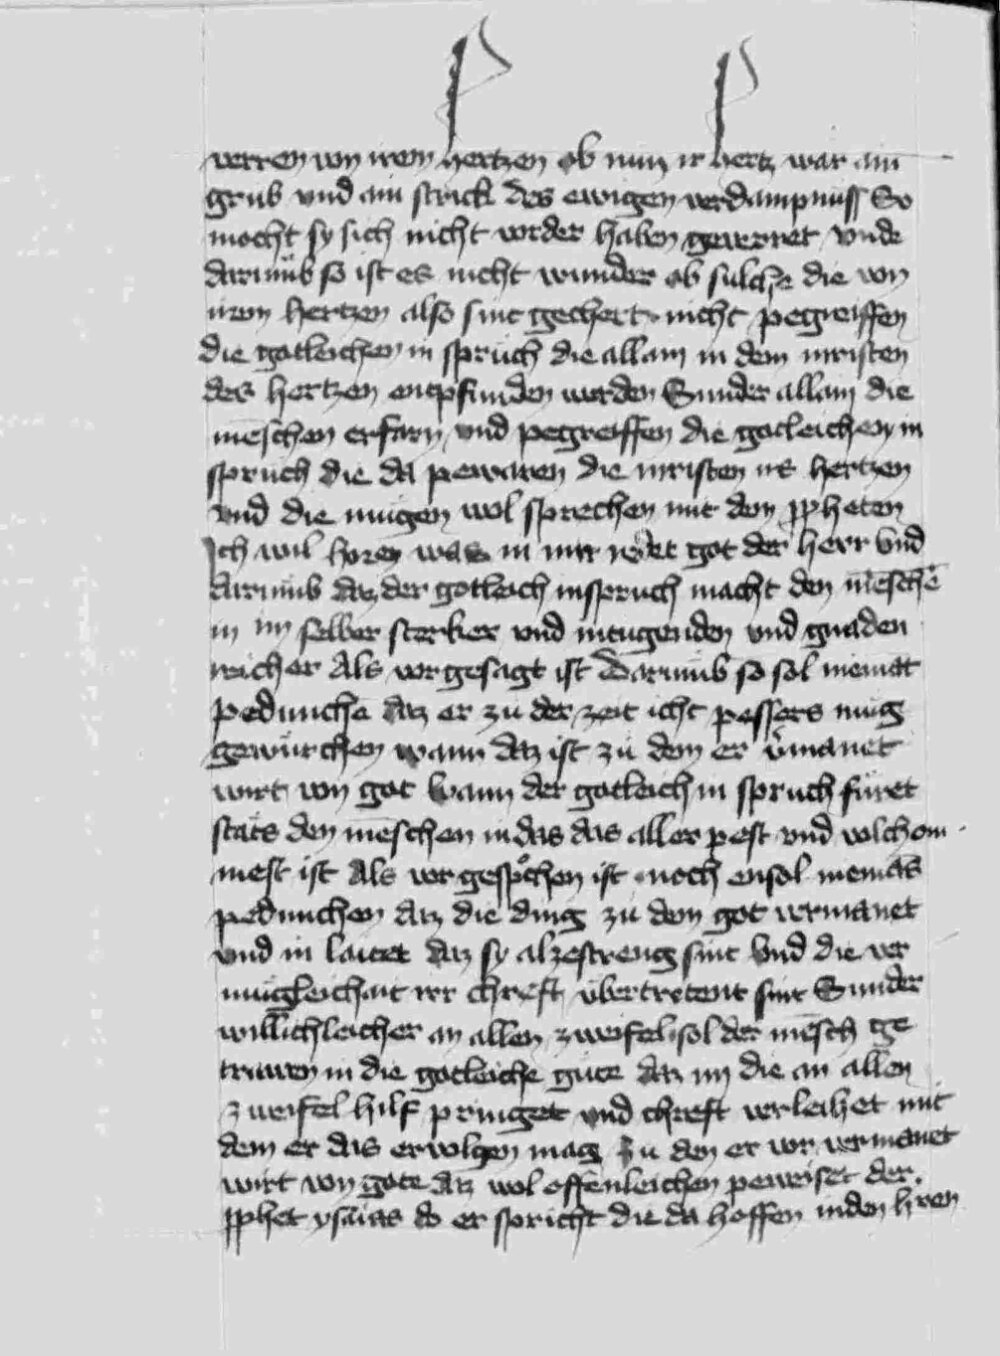 verren von irem hertzen ob nun ir hertz wär ain
grub vnd ain strick des ewigen verdampnuss So
mocht sy sich nicht verder haben gevernet vnde
darumb so ist es nicht wunder ob sulche die von
iren hertzen also sint gechert nicht pegreiffen
die gotleichen in spruch die allain in dem inristen
des hertzen enpfunden werden Sunder allain die
menschen erfarn vnd pegreiffen die gotleichen in
spruch die da pewaren die inristen irs hertzen
vnd die mugen wol sprechen mit dem ppheten
Ich wil horen was in mir redet got der herr vnd
darumb daz der gotleich inspruch macht den mēschē
in im selber sterker vnd in tugenden vnd gnaden
reicher Als vor gesagt ist Darumb so sol niemāt
pedunchē daz er zu der zeit icht pessers mug
gewürchen wann daz ist zu dem er v̈manet
wirt von got wann der gotleich in spruch füret
stäts den mēschen in das das aller pest vnd volchom
mest ist Als vor gesprochen ist noch ensol niemās
pedunchen daz die ding zu dem got vermanet
vnd in laitet daz sy alze streng sint vnd die ver
mugleichait irr chreft übertretent sint Sunder
willichleicher an allen zweifel sol der mēsch ge
trawen in die gotleiche güte daz im die an allen
zweifel hilf pringet vnd chreft verleihet mit
dem er das ervolgen mag zu dem er vor vermanet
wirt von gote daz wol offenleichen peweiset der
pphet ysaias do er spricht die da hoffen in den hren